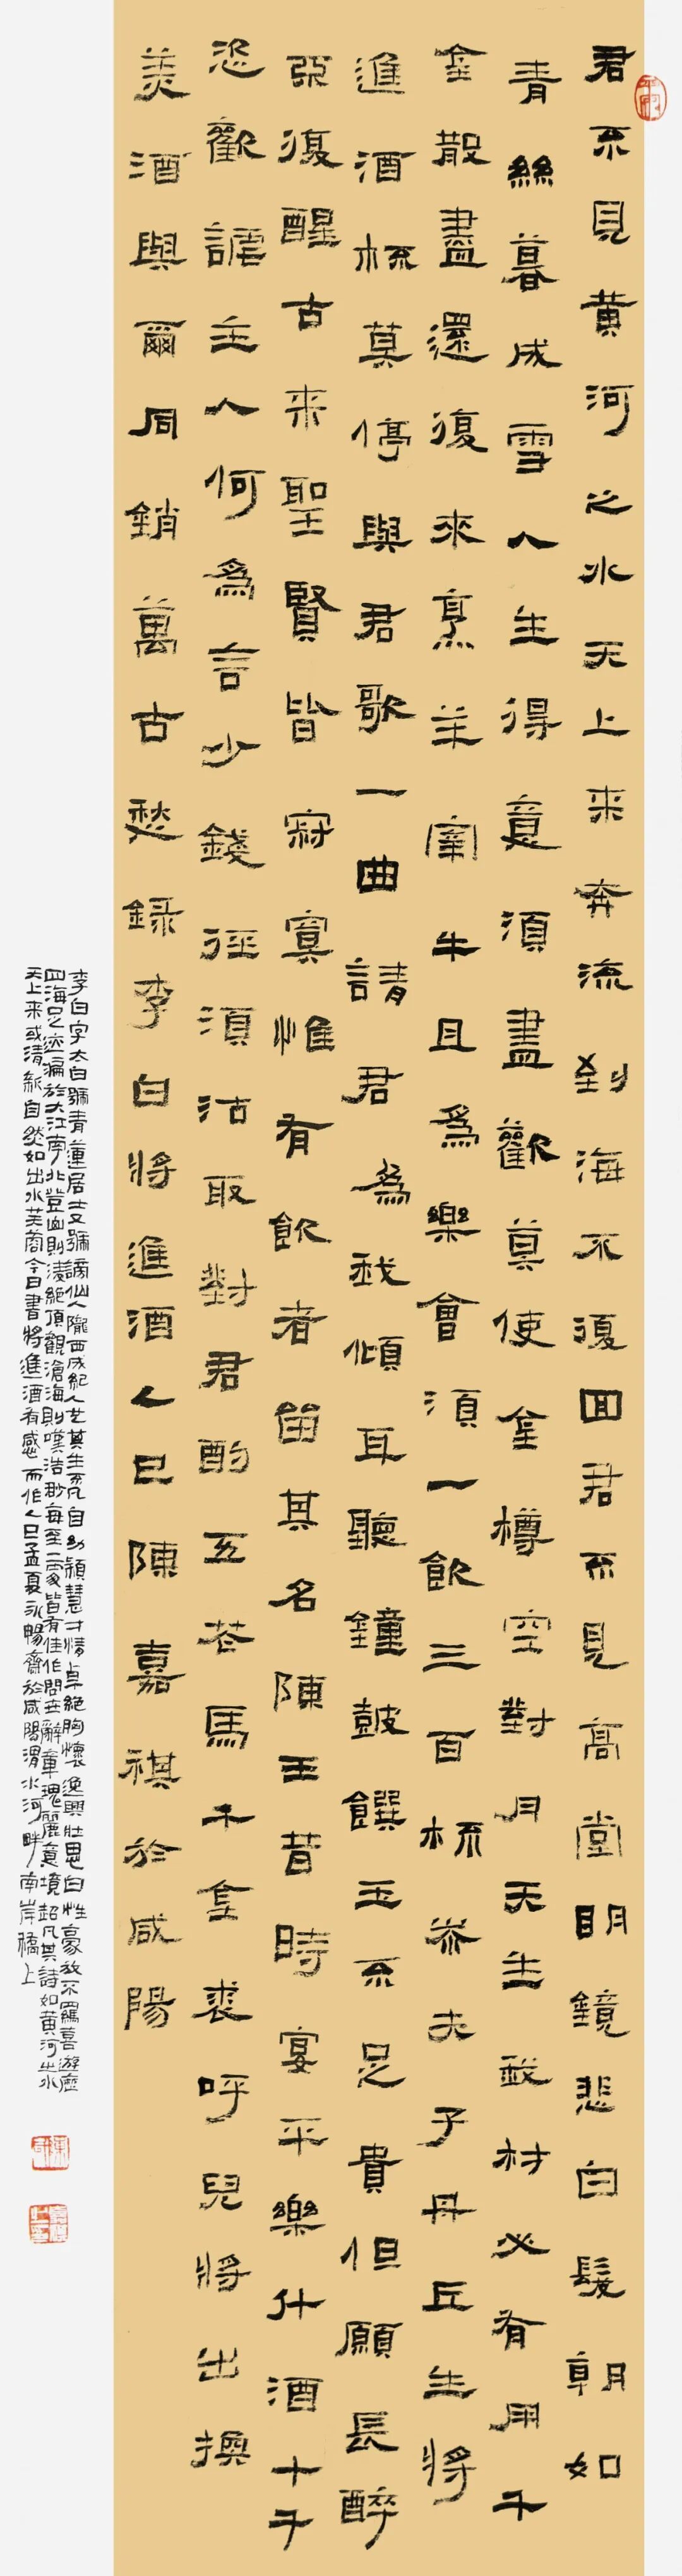 君不見黄河之水天上来奔流到海不復回君不見髙堂明鏡悲白髮朝如
青絲暮成雪人生得意須盡歡莫使金樽空對月天生我材必有用千
金散盡還復來烹羊宰牛且為樂會須一飲三百杯岑夫子丹丘生將
進酒杯莫停與君歌一曲請君為我傾耳聽鐘鼓饌玉不足貴但願長醉
不復醒古来聖賢皆寂寞惟有飲者留其名陳王昔時宴平樂斗酒十千
恣歡謔主人何為言少錢徑須沽取對君酌五花馬千金裘呼兒將出換
美酒與爾同銷萬古愁録李白將進酒乙巳陳嘉祺於咸陽
李白字太白號青蓮居士又號謫仙人隴西成紀人也其生不凡自幼穎慧才情卓絕胸懷逸興壯思白性豪放不羈喜遊歷
四海足迹遍於大江南北登山則凌絕頂觀滄海則嘆浩渺每至一處皆有佳作問世辭章瑰麗意境超凡其詩如黄河之水
天上来或清新自然如出水芙蓉今日書將進酒有感而作乙巳孟夏永暢齋於咸陽渭水河畔南岸橋上